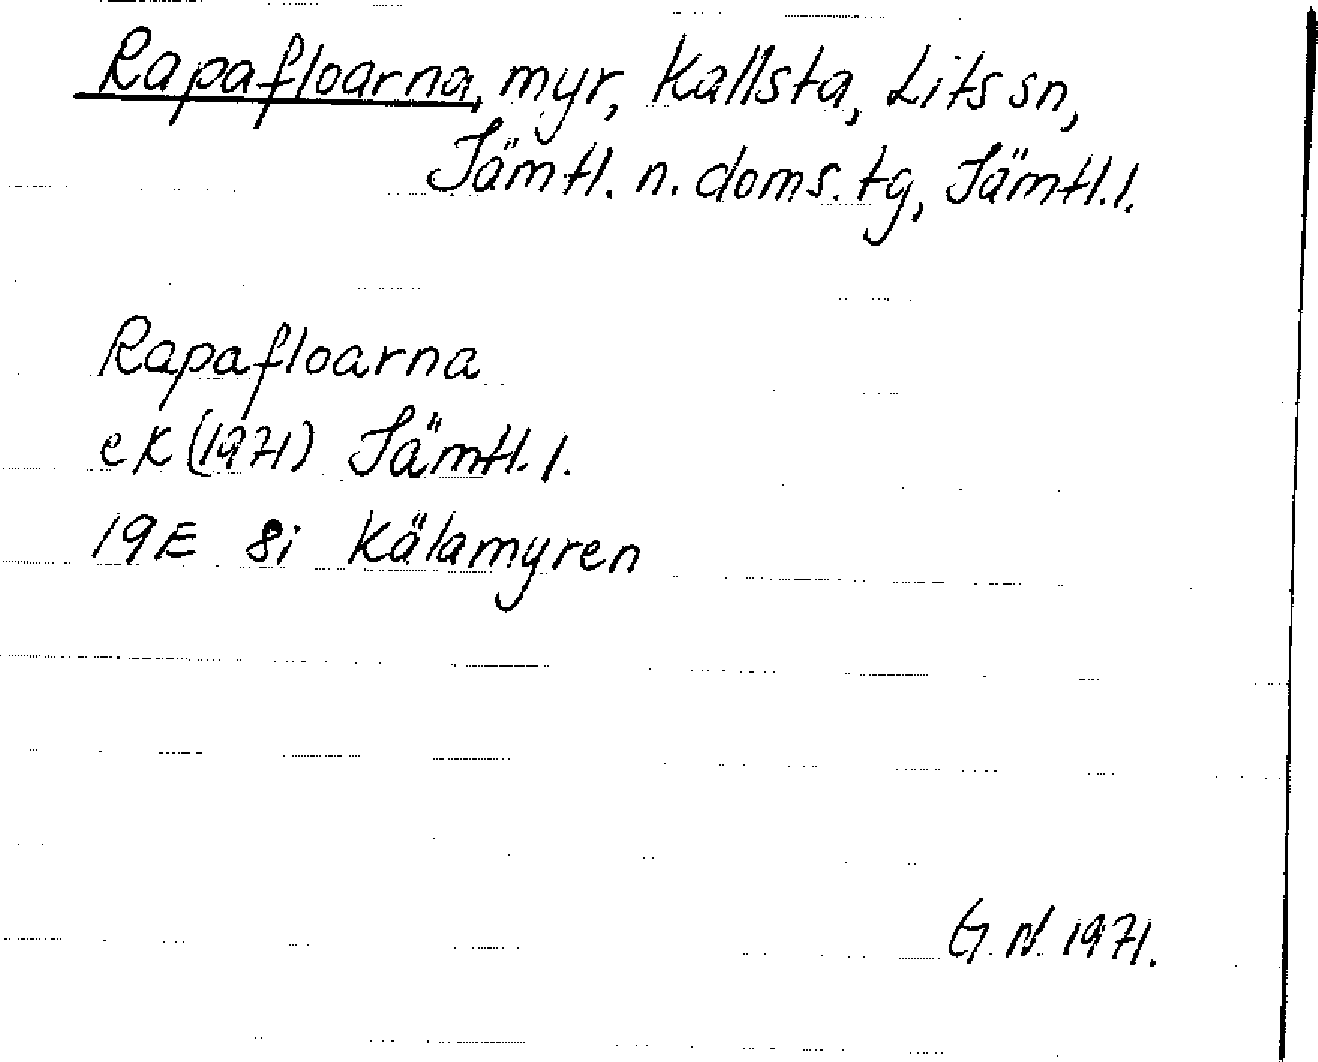 Rapafloarna, myr, Kallsta, Lits sn,
Jämtl. n. doms. tg, Jämtl. l.
Rapafloarna
ek (1971) Jämtl. l.
19E 8i Kälamyren
G. N. 1971.